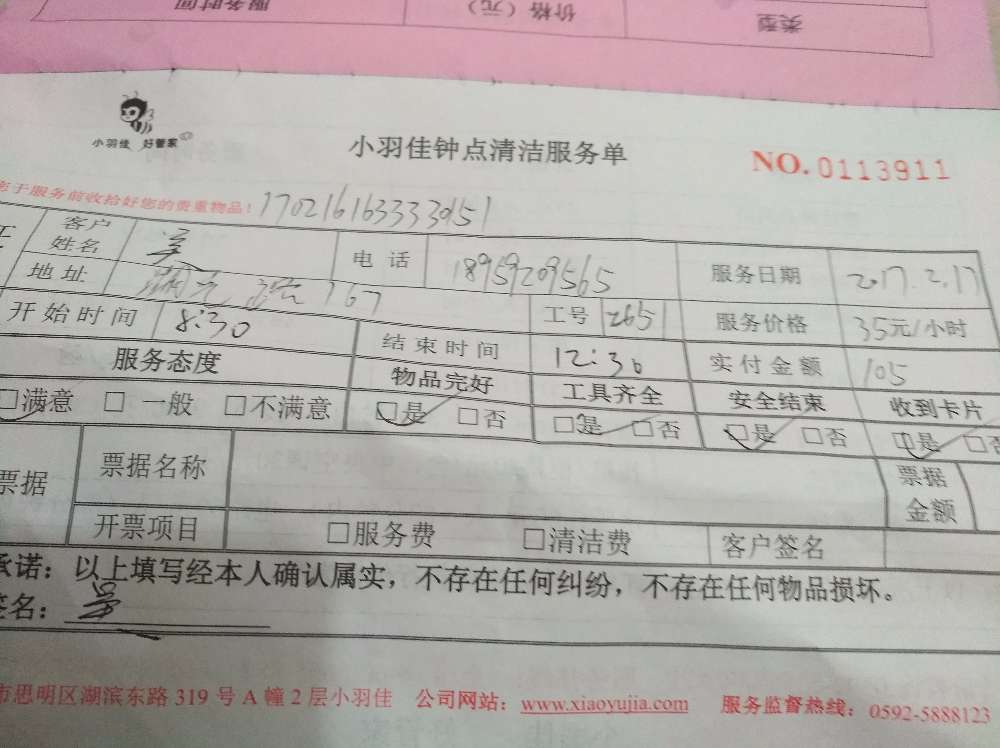 服务时间 价格（元） 类型
小羽佳 好管家
小羽佳钟点清洁服务单 NO. 0113911
于服务前收拾好您的贵重物品！
客户姓名 电话 18959209565 服务日期 2017.2.17
地址 767 工号 2651 服务价格 35元/小时
开始时间 8:30 结束时间 12:30 实付金额 105
服务态度 物品完好 工具齐全 安全结束 收到卡片
□满意 □一般 □不满意 □是 □否 □是 □否 □是 □否 □是 □否
票据 票据名称 票据金额
开票项目 □服务费 □清洁费 客户签名
承诺：以上填写经本人确认属实，不存在任何纠纷，不存在任何物品损坏。
签名：
市思明区湖滨东路 319 号 A 幢 2 层小羽佳 公司网站：www.xiaoyujia.com 服务监督热线：0592-5888123